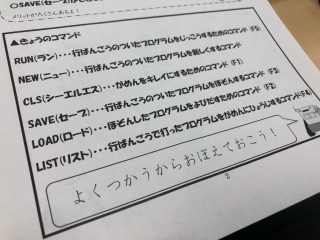 ○SAVE(セーブ)
メリットがたくさんあるよ！
▲きょうのコマンド
RUN(ラン)・・・行ばんごうのついたプログラムをじっこうするためのコマンド (F5)
NEW(ニュー)・・・行ばんごうのついたプログラムを新しくするコマンド
CLS(シーエルエス)・・・がめんをキレイにするためのコマンド (F1)
SAVE(セーブ)・・・行ばんごうのついたプログラムをほぞんするコマンド (F3)
LOAD(ロード)・・・ほぞんしたプログラムをよびだすためのコマンド (F2)
LIST(リスト)・・・行ばんごうで打ったプログラムをがめんにひょうじするコマンド(F4)
よくつかうからおぼえておこう！
2